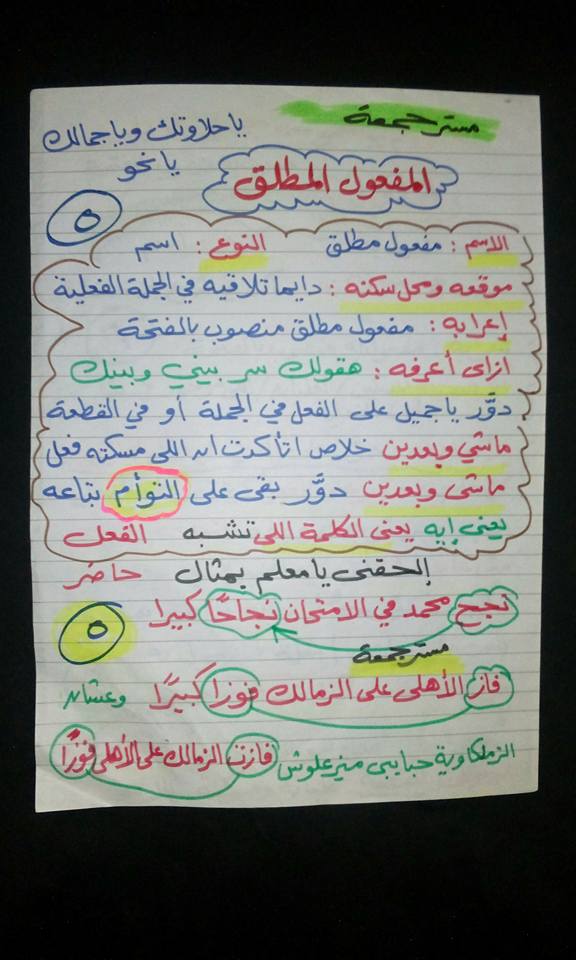 مستر جمعة
ياحلاوتك وياجمالك
يانحو
المفعول المطلق
٥
الاسم : مفعول مطلق النوع : اسم
موقعه ومحل سكنه : دايما تلاقيه في الجملة الفعلية
إعرابه : مفعول مطلق منصوب بالفتحة
ازاى أعرفه : هقولك سر بيني وبينك
دوَّر ياجميل على الفعل في الجملة أو في القطعة
ماشي وبعدين خلاص اتأكدت ان اللى مسكته فعل
ماشى وبعدين دوَّر بقى على التوأم بتاعه
يعنى إيه يعنى الكلمة اللى تشبه الفعل
إلحقنى يامعلم بمثال حاضر
نجح محمد في الامتحان نجاحًا كبيرا
٥
مستر جمعة
فاز الأهلى على الزمالك فوزا كبيرًا وعشان
الزملكاوية حبايبى ميزعلوش فازت الزمالك على الأهلى فوزًا